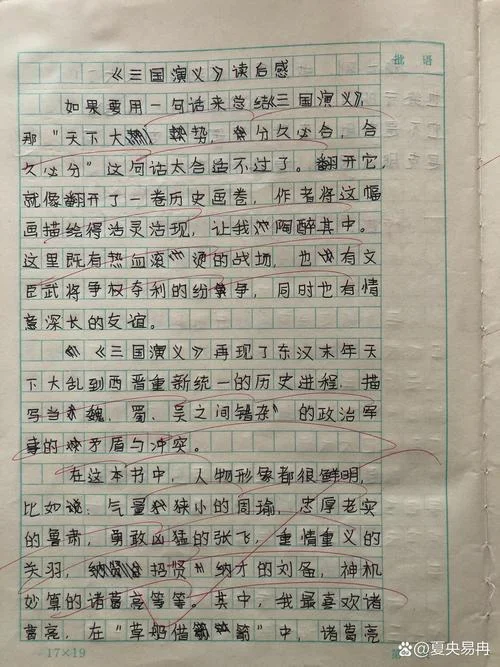 批 语
《三国演义》读后感
如果要用一句话来总结《三国演义》,
那“天下大势,分久必合,合
久必分”这句话太合适不过了。翻开它,
就像翻开了一卷历史画卷,作者将这幅
画描绘得活灵活现,让我陶醉其中。
这里既有热血滚烫的战场,也有文
臣武将争权夺利的纷争,同时也有情
意深长的友谊。
《三国演义》再现了东汉末年天
下大乱到西晋重新统一的历史进程,描
写当魏、蜀、吴之间错杂的政治军
事的矛盾与冲突。
在这本书中,人物形象都很鲜明,
比如说:气量狭小的周瑜,忠厚老实
的鲁肃,勇敢凶猛的张飞,重情重义的
关羽,招贤纳才的刘备,神机
妙算的诸葛亮等等。其中,我最喜欢诸
葛亮,在“草船借箭”中,诸葛亮
17×19
@夏央易冉